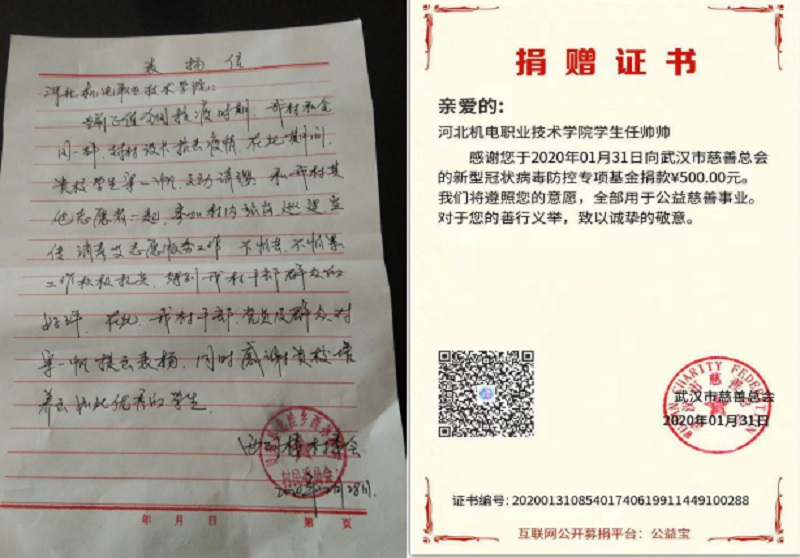 表扬信
河北机电职业技术学院:
当前正值全国抗疫时期,我村和全
国一样,
贵校学生
他志愿者一起,参加村内站岗、巡逻、宣
传、消毒等志愿服务工作,不怕苦、不怕累
工作积极扎实,得到我村干部群众的
好评。在此,我村干部、党员及群众对
提出表扬,同时感谢贵校培
养出如此优秀的学生。
村民委员会
年 月 日
第 页
捐赠证书
亲爱的:
河北机电职业技术学院学生任帅帅
感谢您于2020年01月31日向武汉市慈善总会
的新型冠状病毒防控专项基金捐款¥500.00元。
我们将遵照您的意愿,全部用于公益慈善事业。
对于您的善行义举,致以诚挚的敬意。
武汉市慈善总会
2020年01月31日
证书编号: 2020013108540174061991144910028​8
互联网公开募捐平台:公益宝